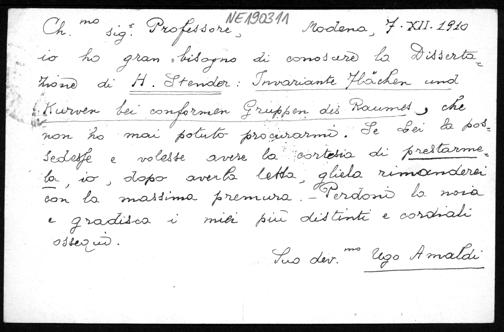 NE190311
Ch.mo sig.r Professore, Modena, 7-XII. 1910
io ho gran bisogno di conoscere la Disserta-
zione di H. Stender: Invariante Flächen und
Kurven bei conformen Gruppen des Raumes, che
non ho mai potuto procurarmi. Se Lei la pos-
sedesse e volesse avere la cortesia di prestarme-
la, io, dopo averla letta, gliela rimanderei
con la massima premura. - Perdoni la noia
e gradisca i miei più distinti e cordiali
ossequi.
Suo dev.mo Ugo Amaldi